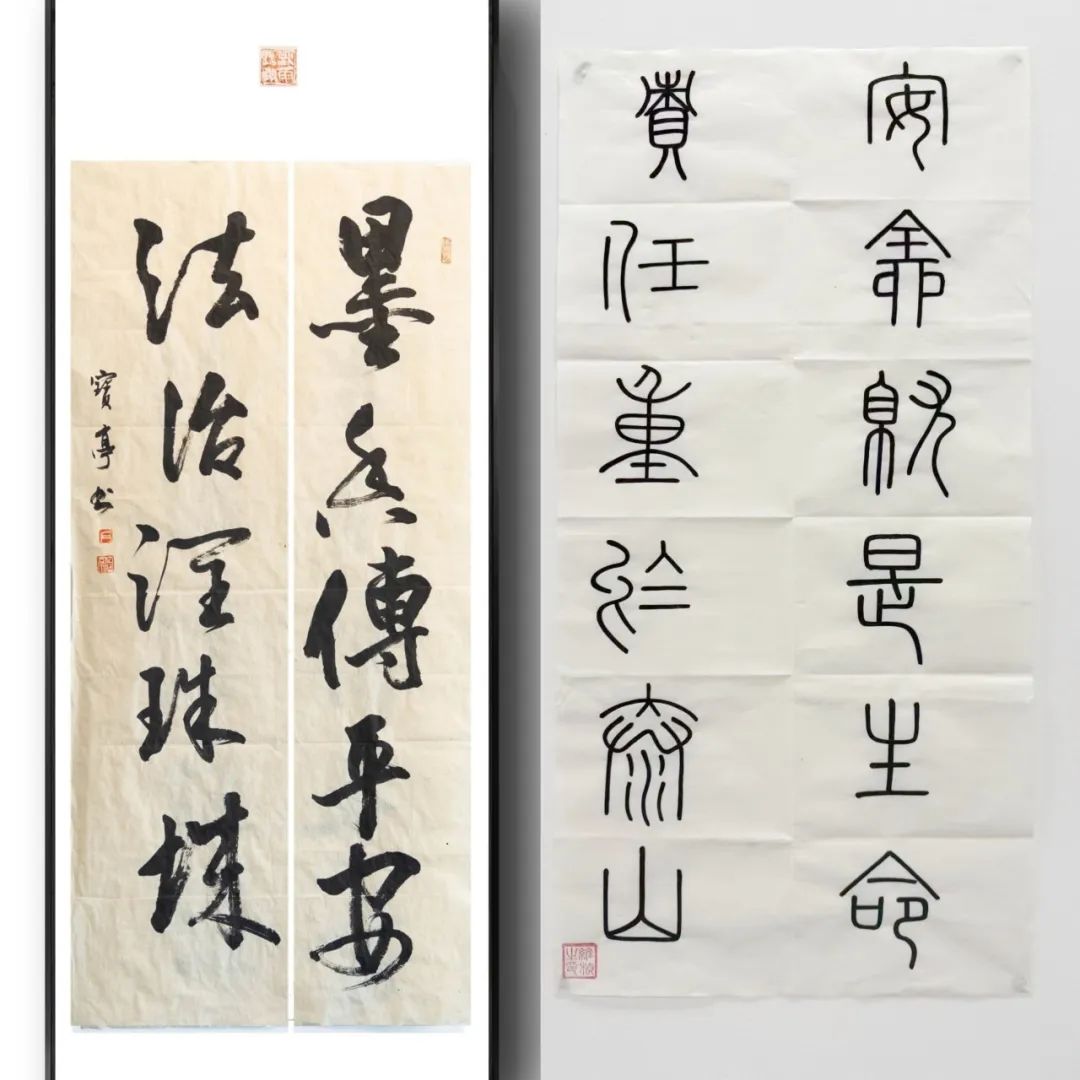 墨香傳平安
法治潤珠城
寶亭书
安全就是生命
責任重於泰山